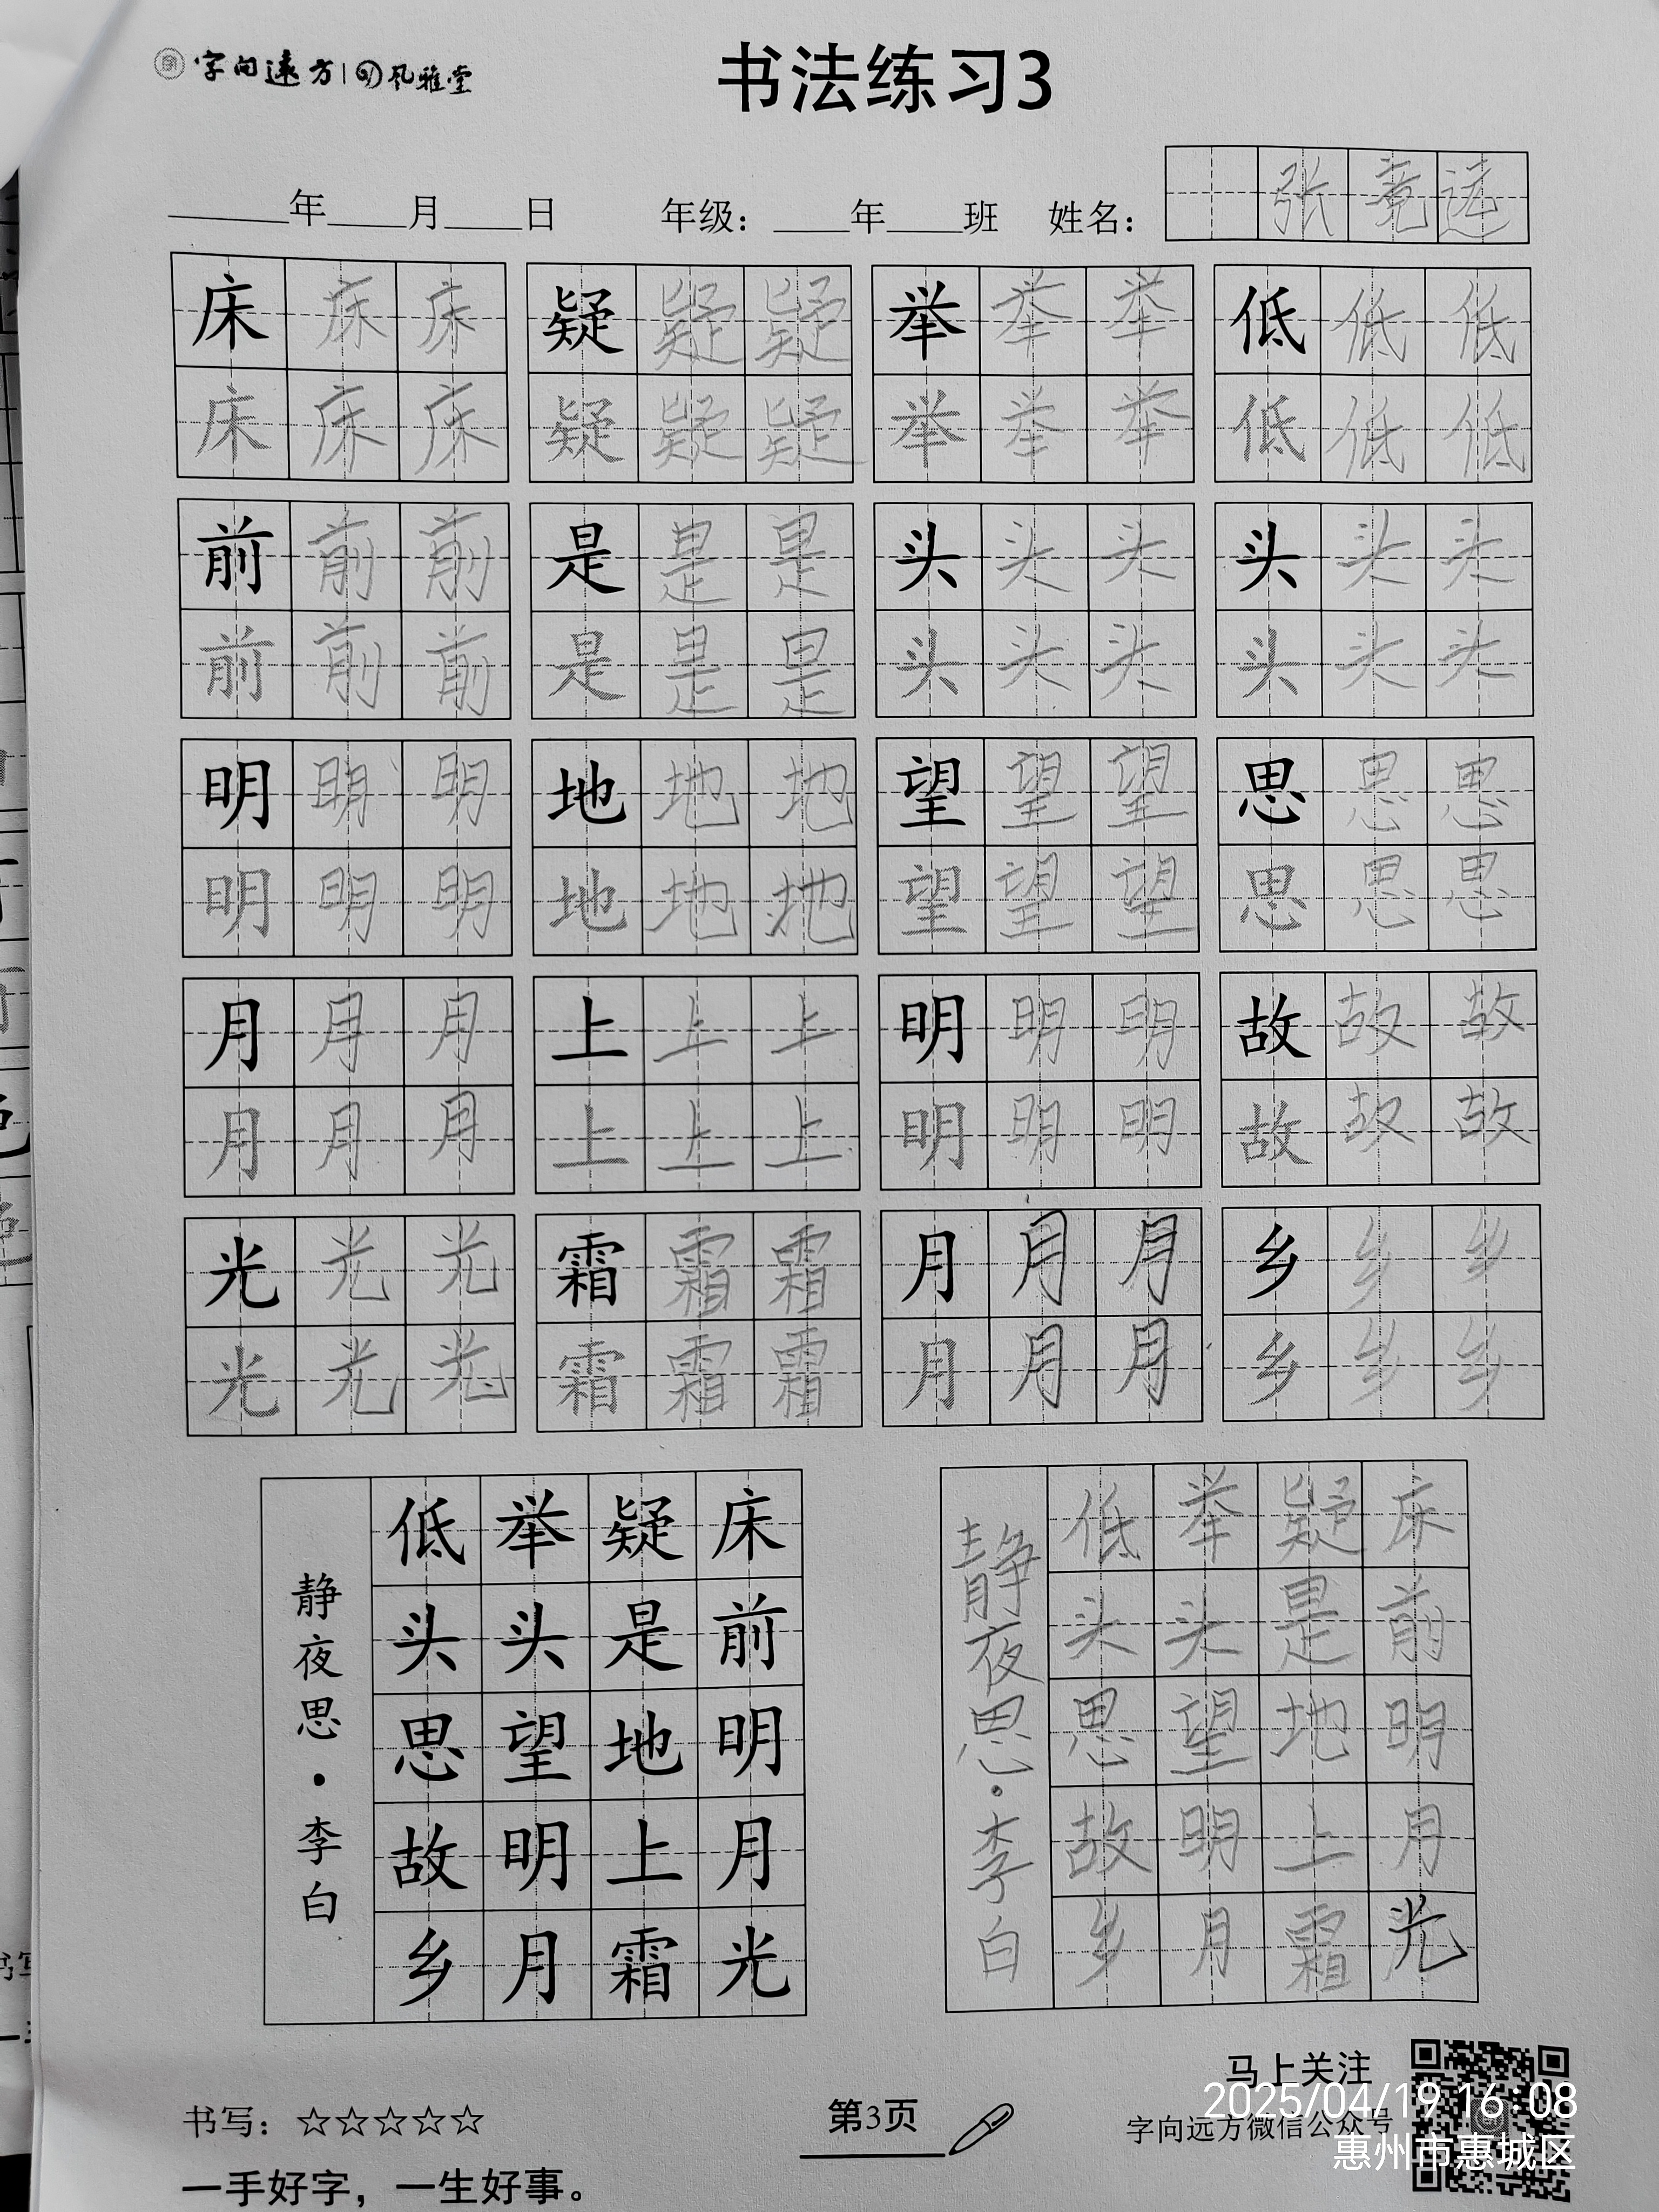 字向遠方 风雅堂
书法练习3
____年____月____日 年级：____年____班 姓名：张竞远
床床床 疑疑疑 举举举 低低低
床床床 疑疑疑 举举举 低低低
前前前 是是是 头头头 头头头
前前前 是是是 头头头 头头头
明明明 地地地 望望望 思思思
明明明 地地地 望望望 思思思
月月月 上上上 明明明 故故故
月月月 上上上 明明明 故故故
光光光 霜霜霜 月月月 乡乡乡
光光光 霜霜霜 月月月 乡乡乡
床前明月光
疑是地上霜
举头望明月
低头思故乡
静夜思·李白
床前明月光
疑是地上霜
举头望明月
低头思故乡
静夜思·李白
马上关注
字向远方微信公众号
书写：☆☆☆☆☆
第3页
一手好字，一生好事。
2025/04/19 16:08
惠州市惠城区